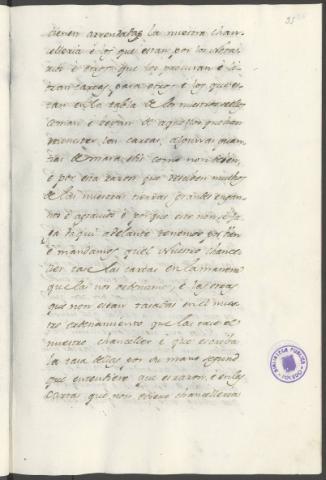 35
tienen arrendadas la nuestra chan
celleria e los que estan por los Abba
des e otros que les procuran e li
bran cartas para otros e los que es
tan en la tabla de los nuestros sellos
toman e lievan de aquellos que han
menester las cartas algunas quan
tias de maravedis como non deben,
e por esta razon que resciben muchos
de la nuestra tierra grandes enganos
e agravios e por que esto non se fa
ga daqui adelante tenemos por bien
e mandamos quel Nuestro chance
ller tase las cartas en la manera
que las nos ordenamos, e las otras
que non estan tasadas en el nues
tro ordenamiento que las tase el
nuestro chanceller e que escriba
la tasa dellas por su mano segund
que entendiere que es razon, e en las
Cartas que non oviere chancelleria
BIBLIOTECA PUBLICA
TOLEDO